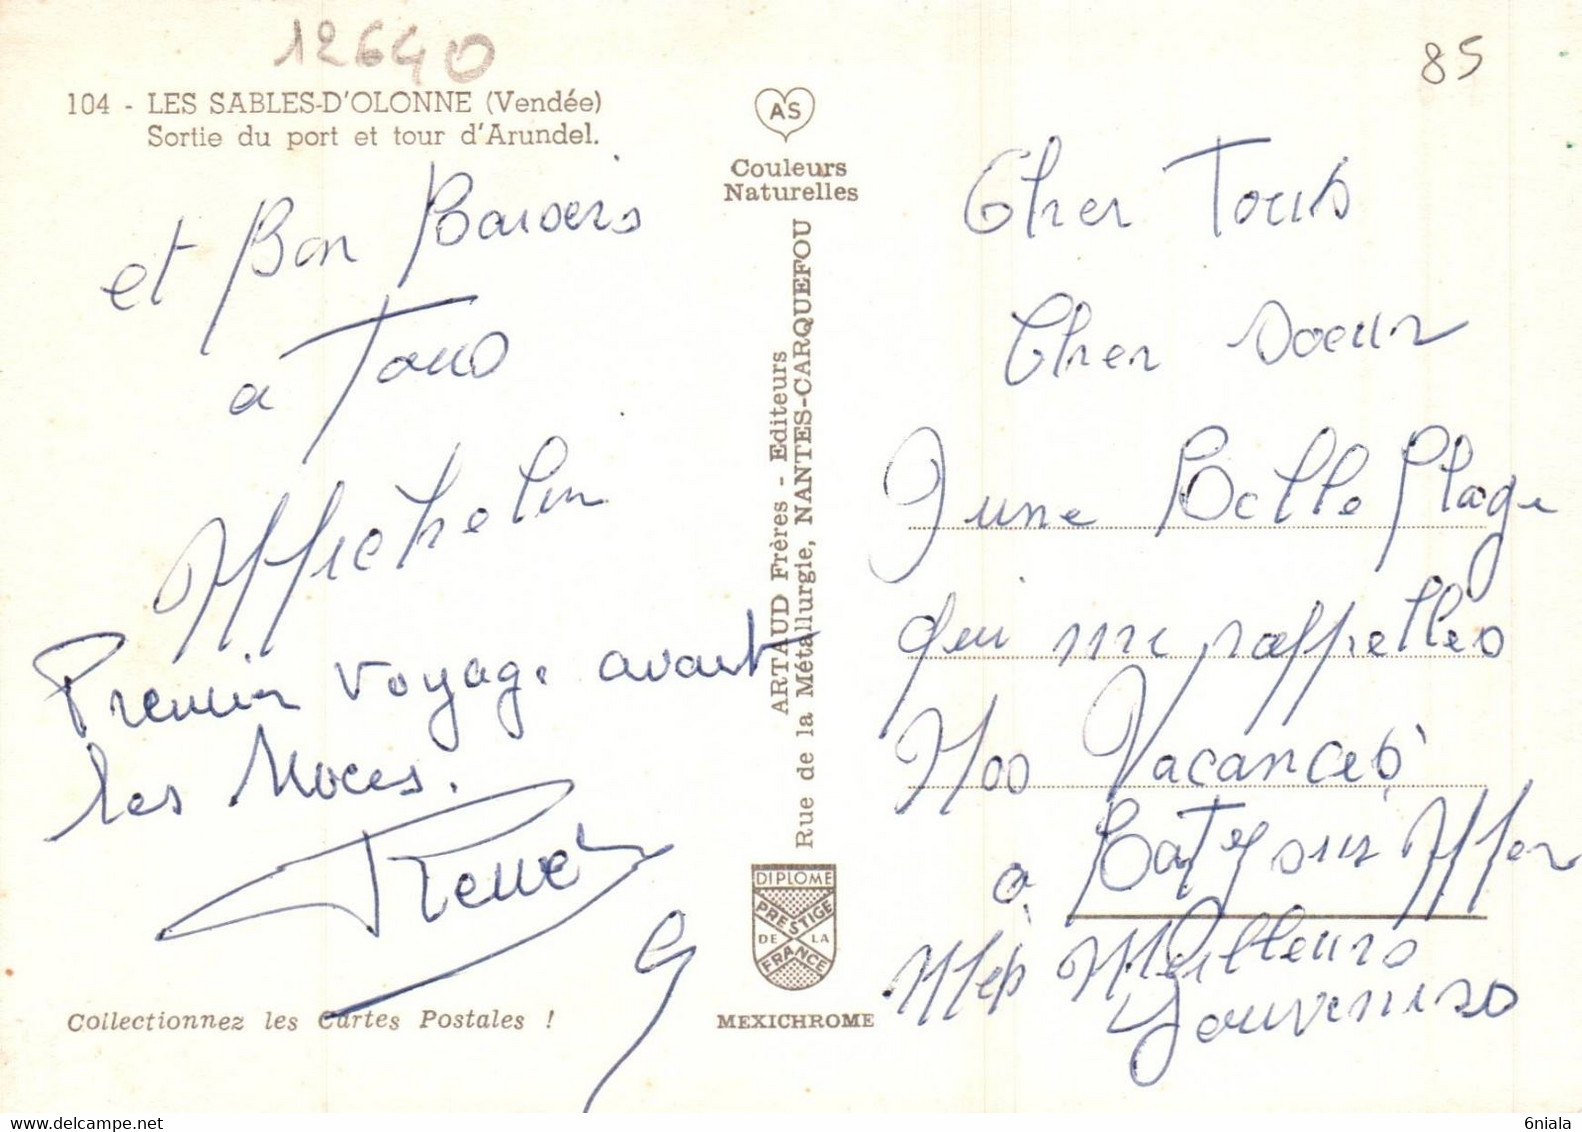 12640
85
104 - LES SABLES-D'OLONNE (Vendée)
Sortie du port et tour d'Arundel.
et Bon Baisers
a Tous
Michelin
Premier voyage avant
les Noces.
AS
Couleurs
Naturelles
ARTAUD Frères - Editeurs
Rue de la Métallurgie, NANTES-CARQUEFOU
DIPLOME
PRESTIGE
DE LA
FRANCE
MEXICHROME
Collectionnez les Cartes Postales !
Cher Tous
Cher soeur
d'une Belle Plage
qui me rappelles
Nos Vacances
a Baty sur Mer
Mes Meilleurs
Souvenirs
6niala